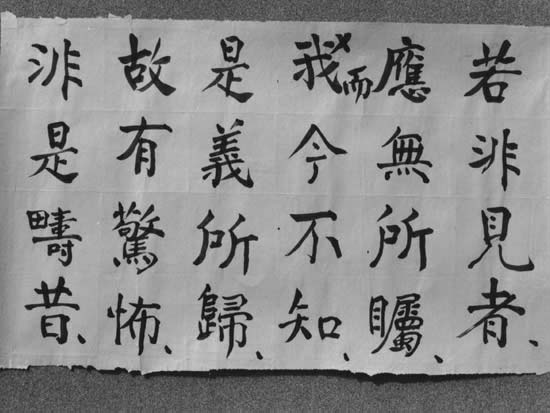 若非見者、
應無所矚、
而我今不知、
是義所歸、
故有驚怖、
非是疇昔、